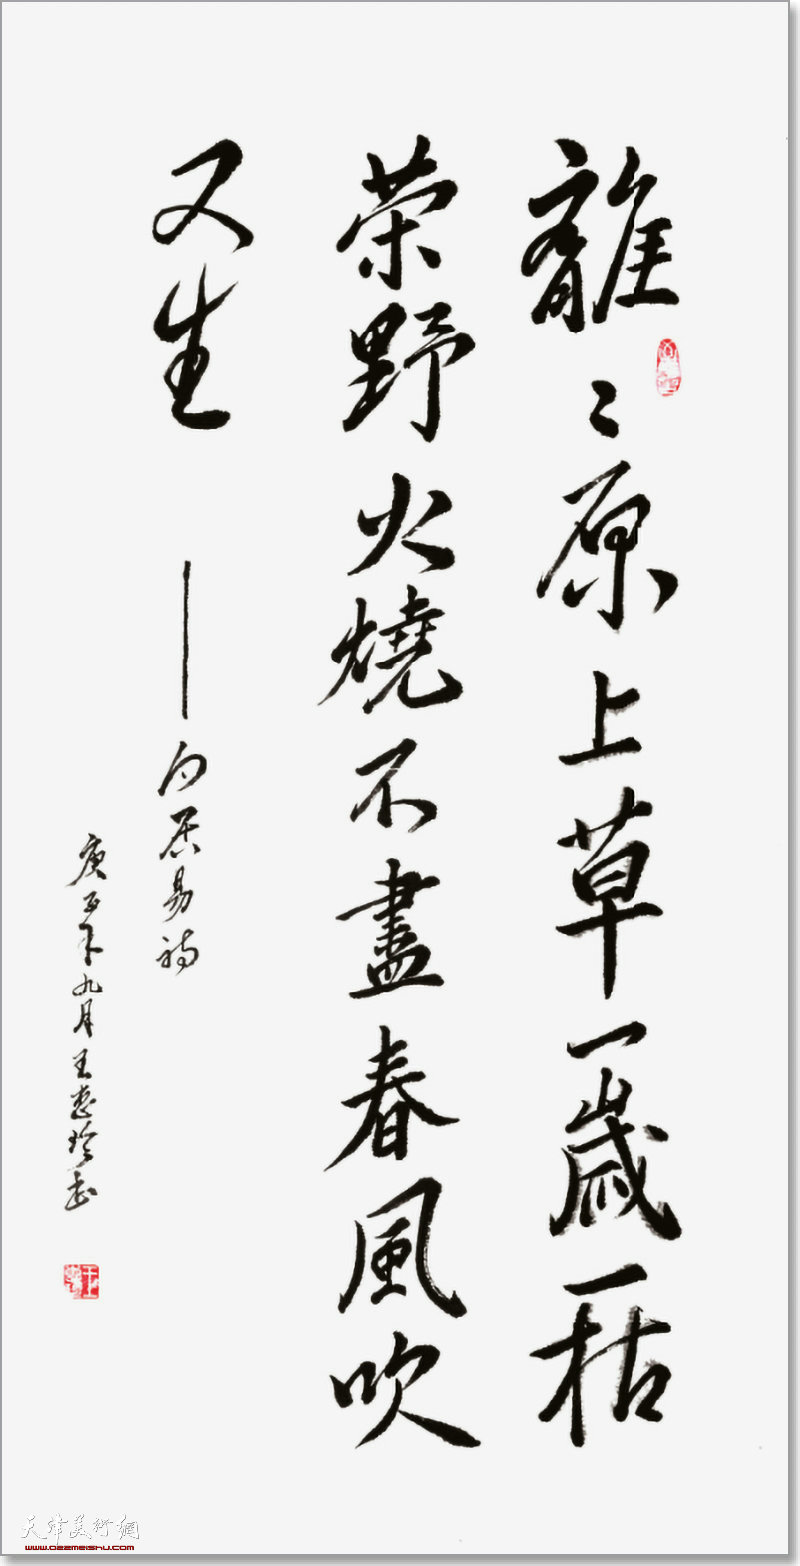 離〻原上草一歲一枯
荣野火燒不盡春風吹
又生
——白居易詩
庚子年九月王惠書
天津美術網
www.022meishu.com